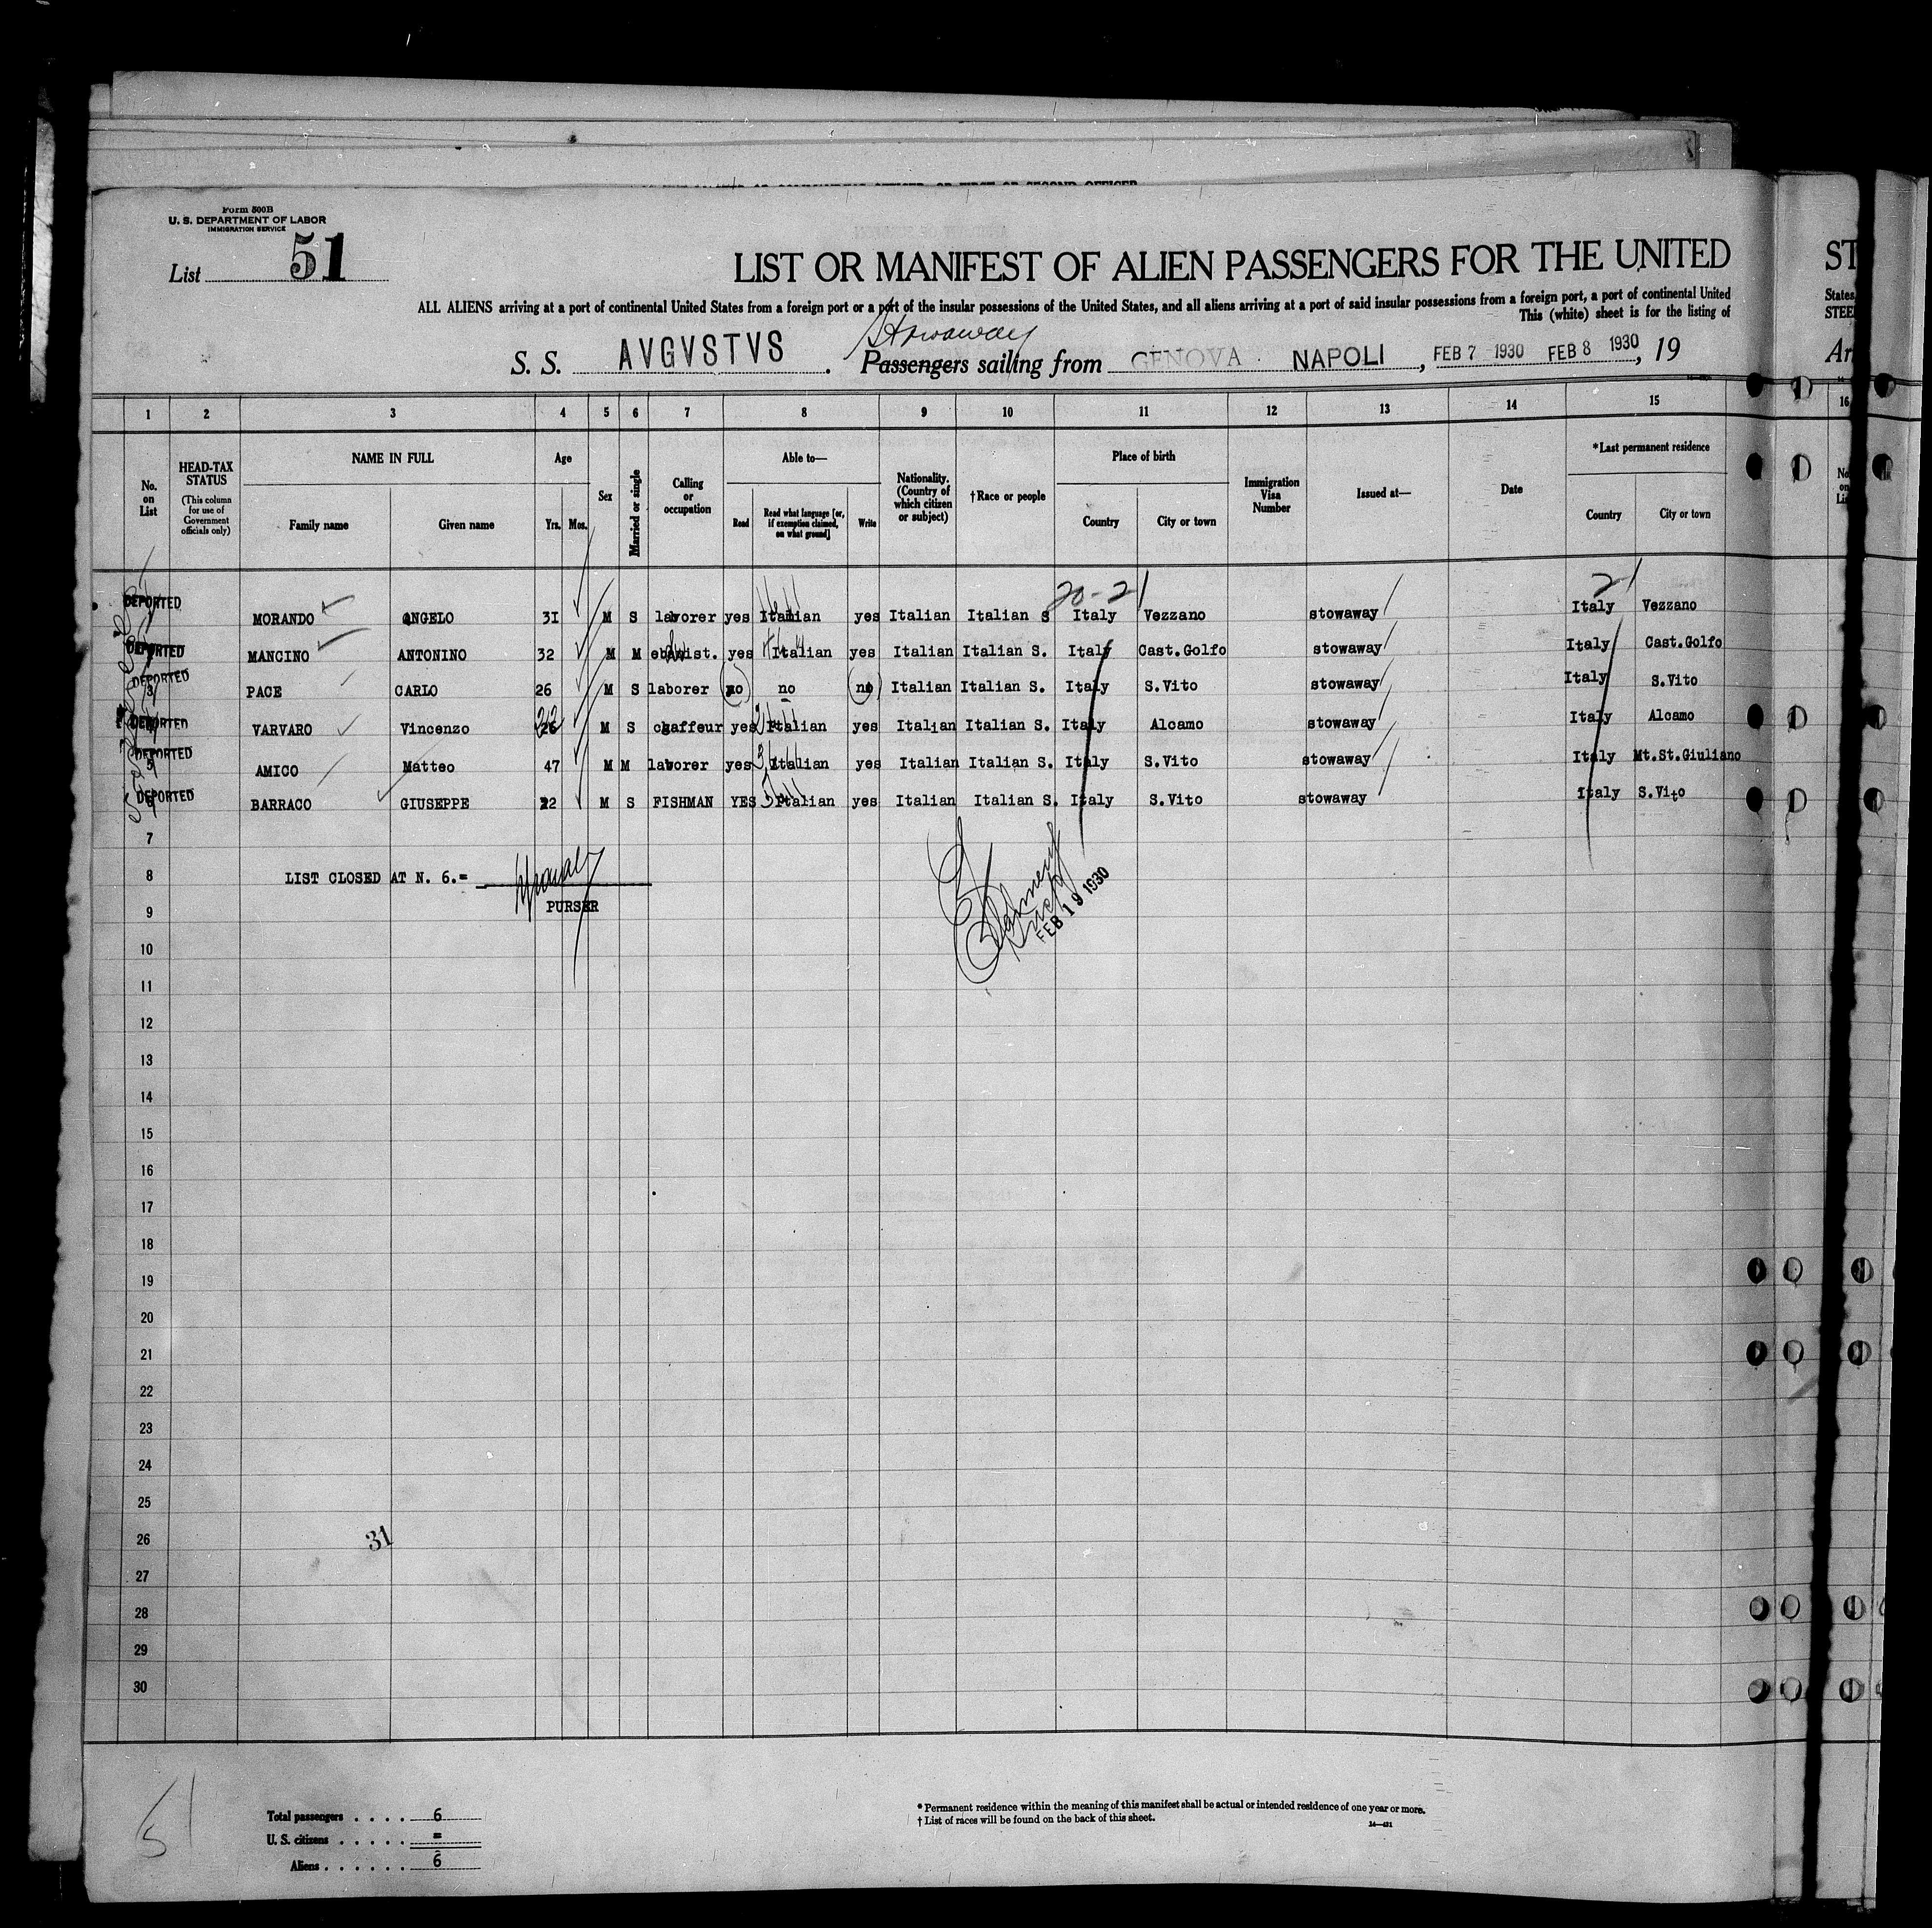 Form 500B
U. S. DEPARTMENT OF LABOR
IMMIGRATION SERVICE
List 51
LIST OR MANIFEST OF ALIEN PASSENGERS FOR THE UNITED
ST
ALL ALIENS arriving at a port of continental United States from a foreign port or a port of the insular possessions of the United States, and all aliens arriving at a port of said insular possessions from a foreign port, a port of continental United
States
This (white) sheet is for the listing of
STEE
Stowaway
S. S. AVGVSTVS. Passengers sailing from GENOVA NAPOLI, FEB 7 1930 FEB 8 1930, 19
Ar
1 2 3 4 5 6 7 8 9 10 11 12 13 14 15 16
No. on List
HEAD-TAX STATUS
(This column for use of Government officials only)
NAME IN FULL
Family name Given name
Age
Yrs. Mos.
Sex
Married or single
Calling or occupation
Able to—
Read
Read what language [or, if exemption claimed, on what ground]
Write
Nationality. (Country of which citizen or subject)
†Race or people
Place of birth
Country City or town
Immigration Visa Number
Issued at—
Date
*Last permanent residence
Country City or town
20-21 21
DEPORTED MORANDO ANGELO 31 M S laborer yes Italian yes Italian Italian S Italy Vezzano stowaway Italy Vezzano
DEPORTED MANCINO ANTONINO 32 M M ebanist. yes Italian yes Italian Italian S. Italy Cast.Golfo stowaway Italy Cast.Golfo
DEPORTED 3 PACE CARLO 26 M S laborer no no no Italian Italian S. Italy S.Vito stowaway Italy S.Vito
DEPORTED VARVARO Vincenzo 26 M S chaffeur yes Italian yes Italian Italian S. Italy Alcamo stowaway Italy Alcamo
DEPORTED 5 AMICO Matteo 47 M M laborer yes Italian yes Italian Italian S. Italy S.Vito stowaway Italy Mt.St.Giuliano
DEPORTED BARRACO GIUSEPPE 22 M S FISHMAN YES Italian yes Italian Italian S. Italy S.Vito stowaway Italy S.Vito
7
8 LIST CLOSED AT N. 6.=
PURSER
FEB 19 1930
9
10
11
12
13
14
15
16
17
18
19
20
21
22
23
24
25
26
31
27
28
29
30
51
Total passengers . . . . 6
U. S. citizens . . . . . =
Aliens . . . . . . 6
* Permanent residence within the meaning of this manifest shall be actual or intended residence of one year or more.
† List of races will be found on the back of this sheet.
14—421